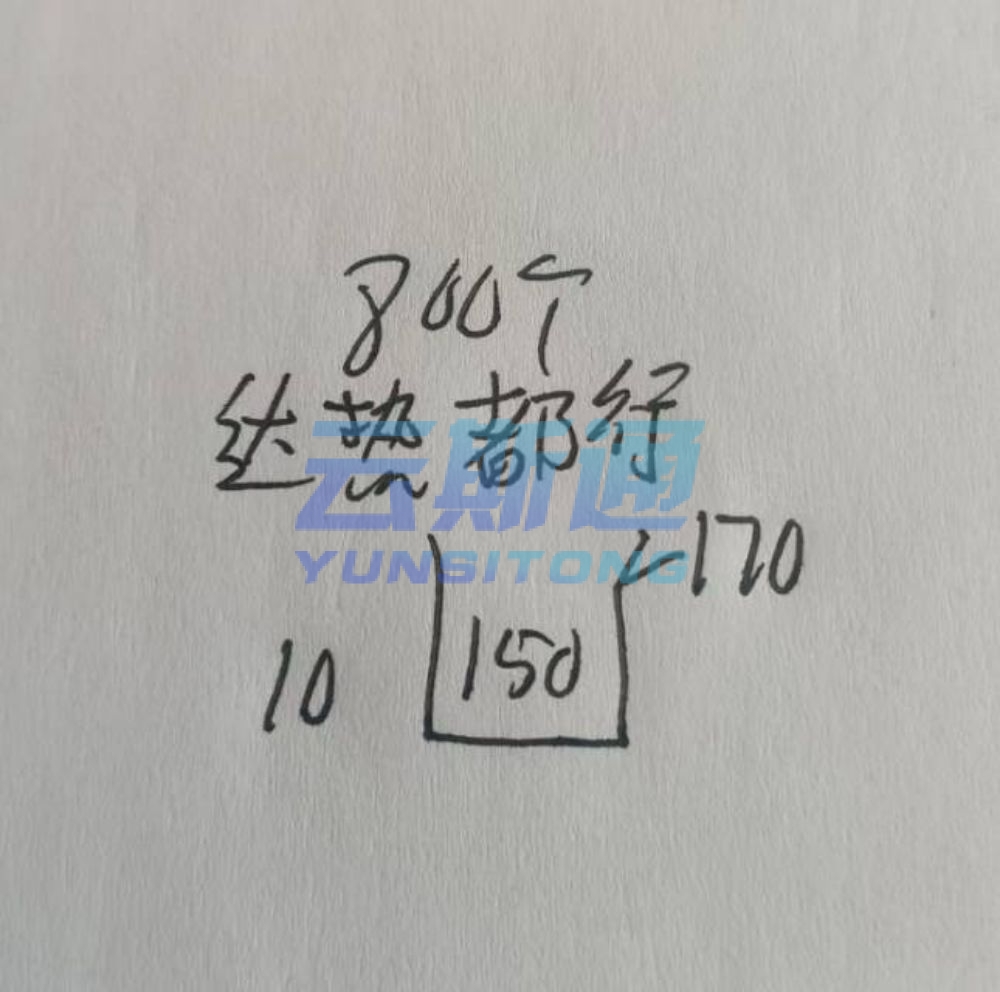 800个
达热都行
170
150
10
云斯通
YUNSITONG